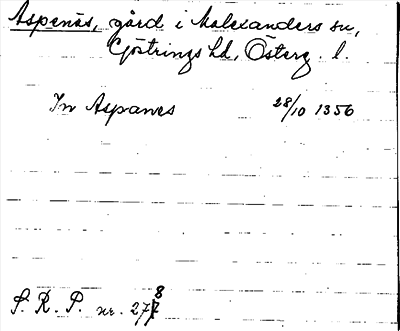 Aspenäs, gård i Malexanders sn,
Göstrings hd, Österg. l.
In Aspanes 28/10 1356
S. R. P. nr. 278